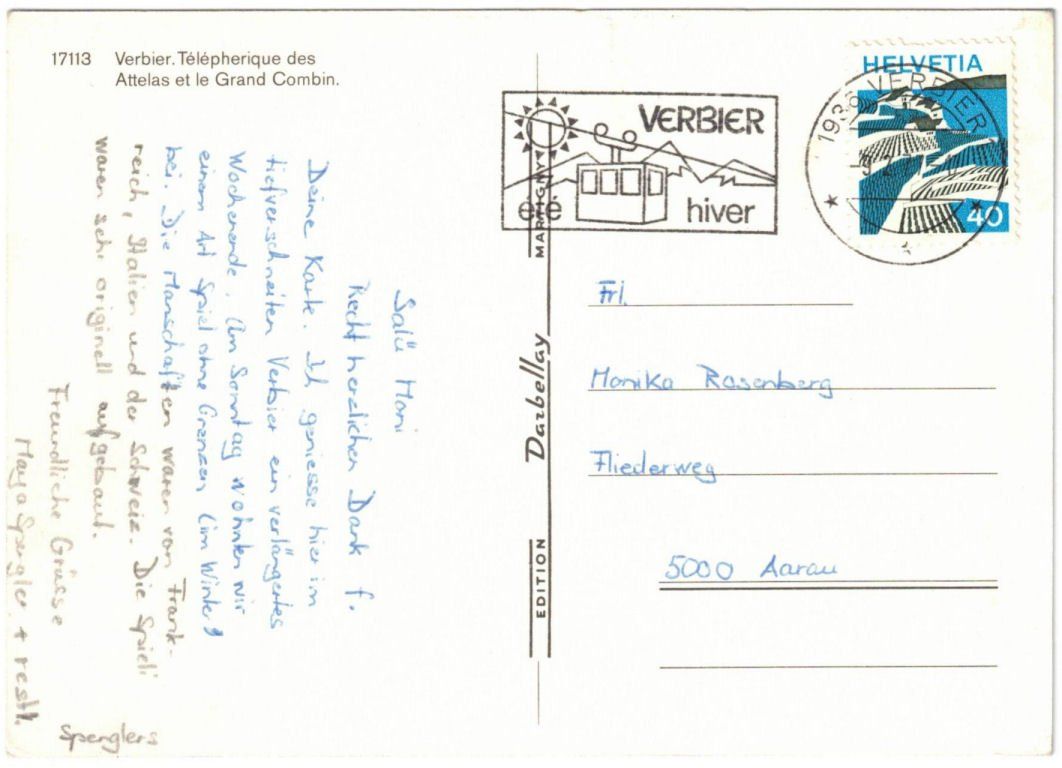 17113 Verbier. Télépherique des
Attelas et le Grand Combin.
Salü Moni
Recht herzlichen Dank f.
Deine Karte. Ich geniesse hier im
tiefverschneiten Verbier ein verlängertes
Wochenende. Am Sonntag wohnten wir
einem Art Spiel ohne Grenzen (im Winter)
bei. Die Manschaften waren von Frank-
reich, Italien und der Schweiz. Die Spiele
waren sehr originell aufgebaut.
Freundliche Grüsse
Maya Spengler + restl.
Spenglers
EDITION Darbellay MARTIGNY
VERBIER
été hiver
1936 VERBIER
HELVETIA
40
Frl.
Monika Rosenberg
Fliederweg
5000 Aarau